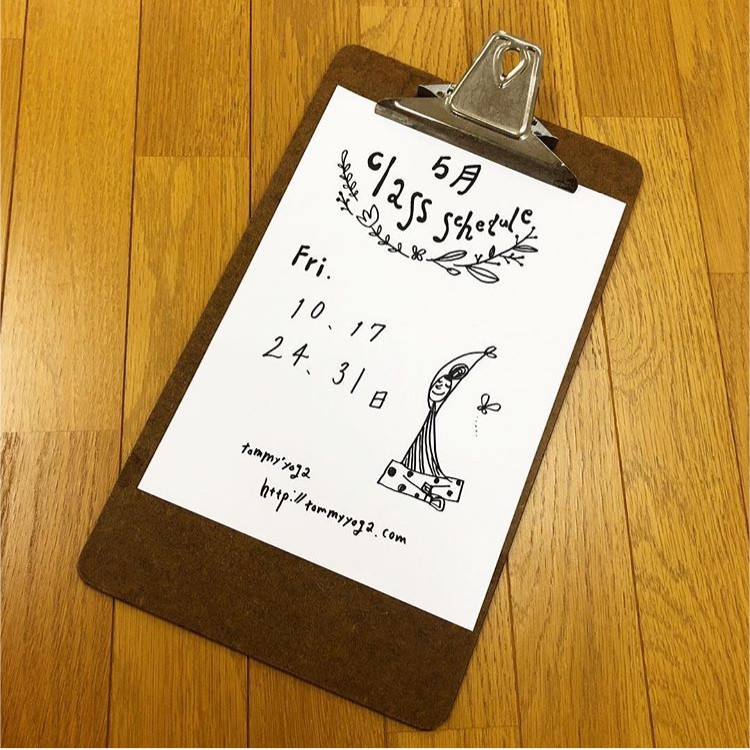 5月
class schedule
Fri.
10、17
24、31日
tommy'yoga
http://tommyyoga.com